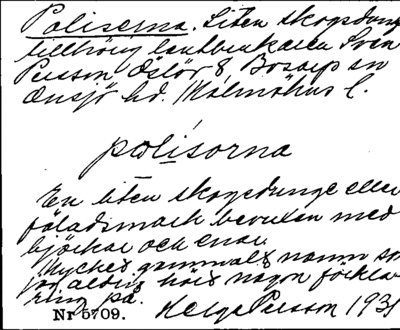 Poliserna. Liten skogsdunge
tillhörig lantbrukaren Sven
Persson Östör 8 Bosarp sn
Onsjö hd. Malmöhus l.
polisorna
En liten skogsdunge eller
fäladsmark bevuxen med
björkar och enar.
Mycket gammalt namn som
jag aldrig hört någon förkla-
ring på.
Nr 5709. Helge Persson 1931